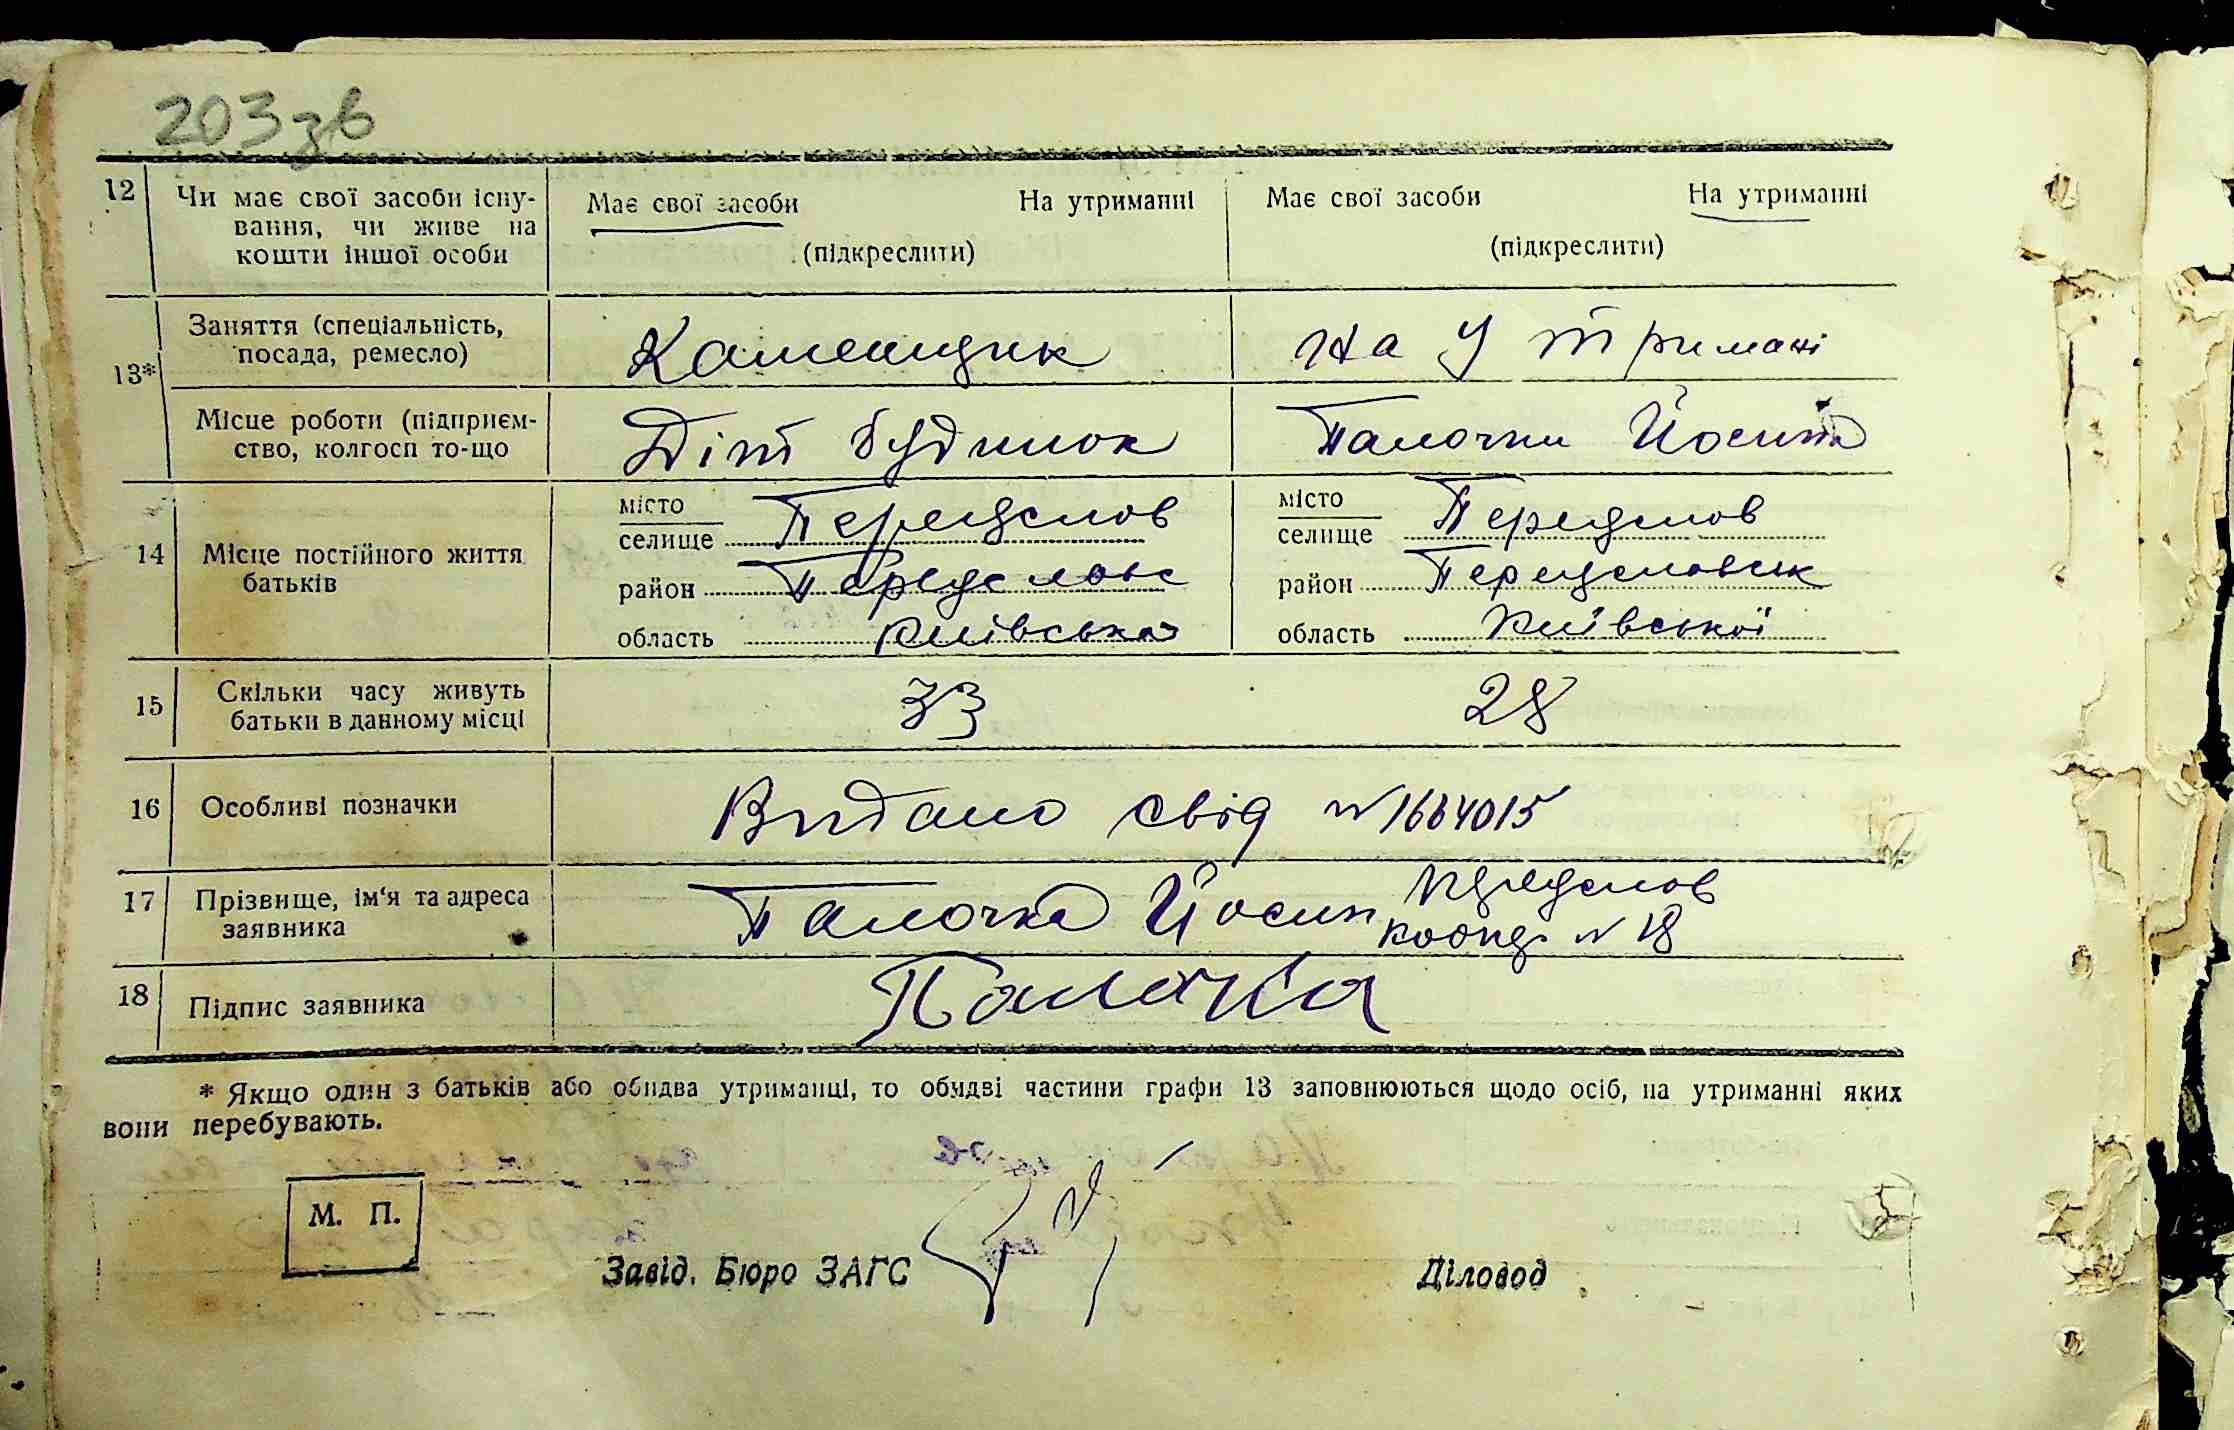 203зв
12 Чи має свої засоби існу-
вання, чи живе на
кошти іншої особи
Має свої засоби На утриманні
(підкреслити)
Має свої засоби На утриманні
(підкреслити)
13* Заняття (спеціальність,
посада, ремесло)
Каменщик
На Утримані
Місце роботи (підприєм-
ство, колгосп то-що
Діт будинок
Палочки Йосипа
14 Місце постійного життя
батьків
місто
селище Переяслов
район Переяславс
область Київська
місто
селище Переяслов
район Переясловськ
область Київської
15 Скільки часу живуть
батьки в данному місці
33
28
16 Особливі позначки
Видано свід № 1664015
17 Прізвище, ім'я та адреса
заявника
Палочка Йосип Переяслов
№ 18
18 Підпис заявника
Палочка
* Якщо один з батьків або обидва утриманці, то обидві частини графи 13 заповнюються щодо осіб, на утриманні яких
вони перебувають.
М. П.
Завід. Бюро ЗАГС
Діловод